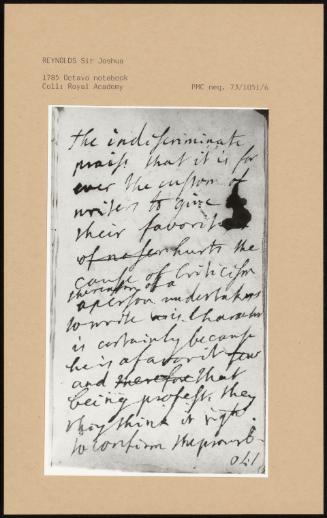 REYNOLDS Sir Joshua
1785 Octavo notebook
Coll: Royal Academy
PMC neg. 73/1051/6
the indiscriminate
praise that it is for
ever the custom of
writers to give
their favorit
of no fer hurts the
cause of Criticism
the reason of a
a person undertakes
to write a is Character
is certainly because
he is a favorit
and therefore that
being profest. they
they think it right
to confirm the prov